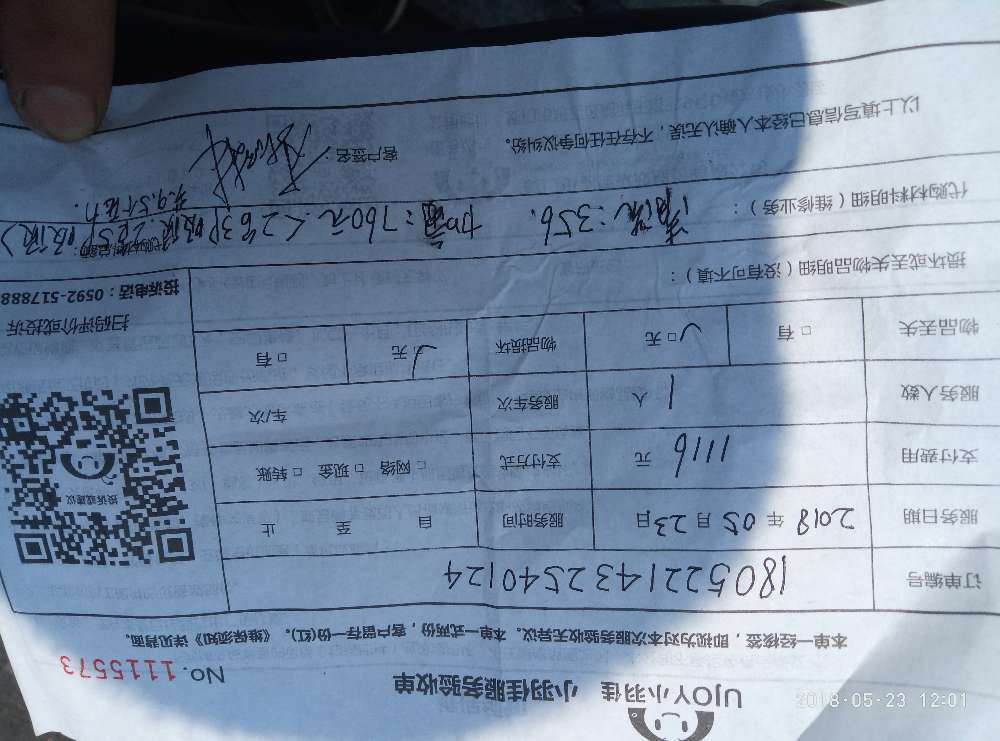 UJOY小羽佳 小羽佳服务验收单
NO. 1115573
本单一经核签，即视为对本次服务验收无异议。本单一式两份，客户留存一份(红)。《维保须知》详见背面。
订单编号 180522143254０124
服务日期 2018 年 05 月 23 日 服务时间 自 至 止
支付费用 1116 元 支付方式 □ 网络 □ 现金 □ 转账
服务人数 1 人 服务车次 车/次
物品丢失 □ 有 □ 无 物品损坏 □ 无 □ 有
投诉或建议
扫码评价或投诉
投诉电话：0592-517888
损坏或丢失物品明细（没有可不填）：
代购材料明细（维修业务）： 清洗：356. 760元
共9.5个压力.
以上填写信息已经本人确认无误，不存在任何争议纠纷。 客户签名：
2018-05-23 12:01